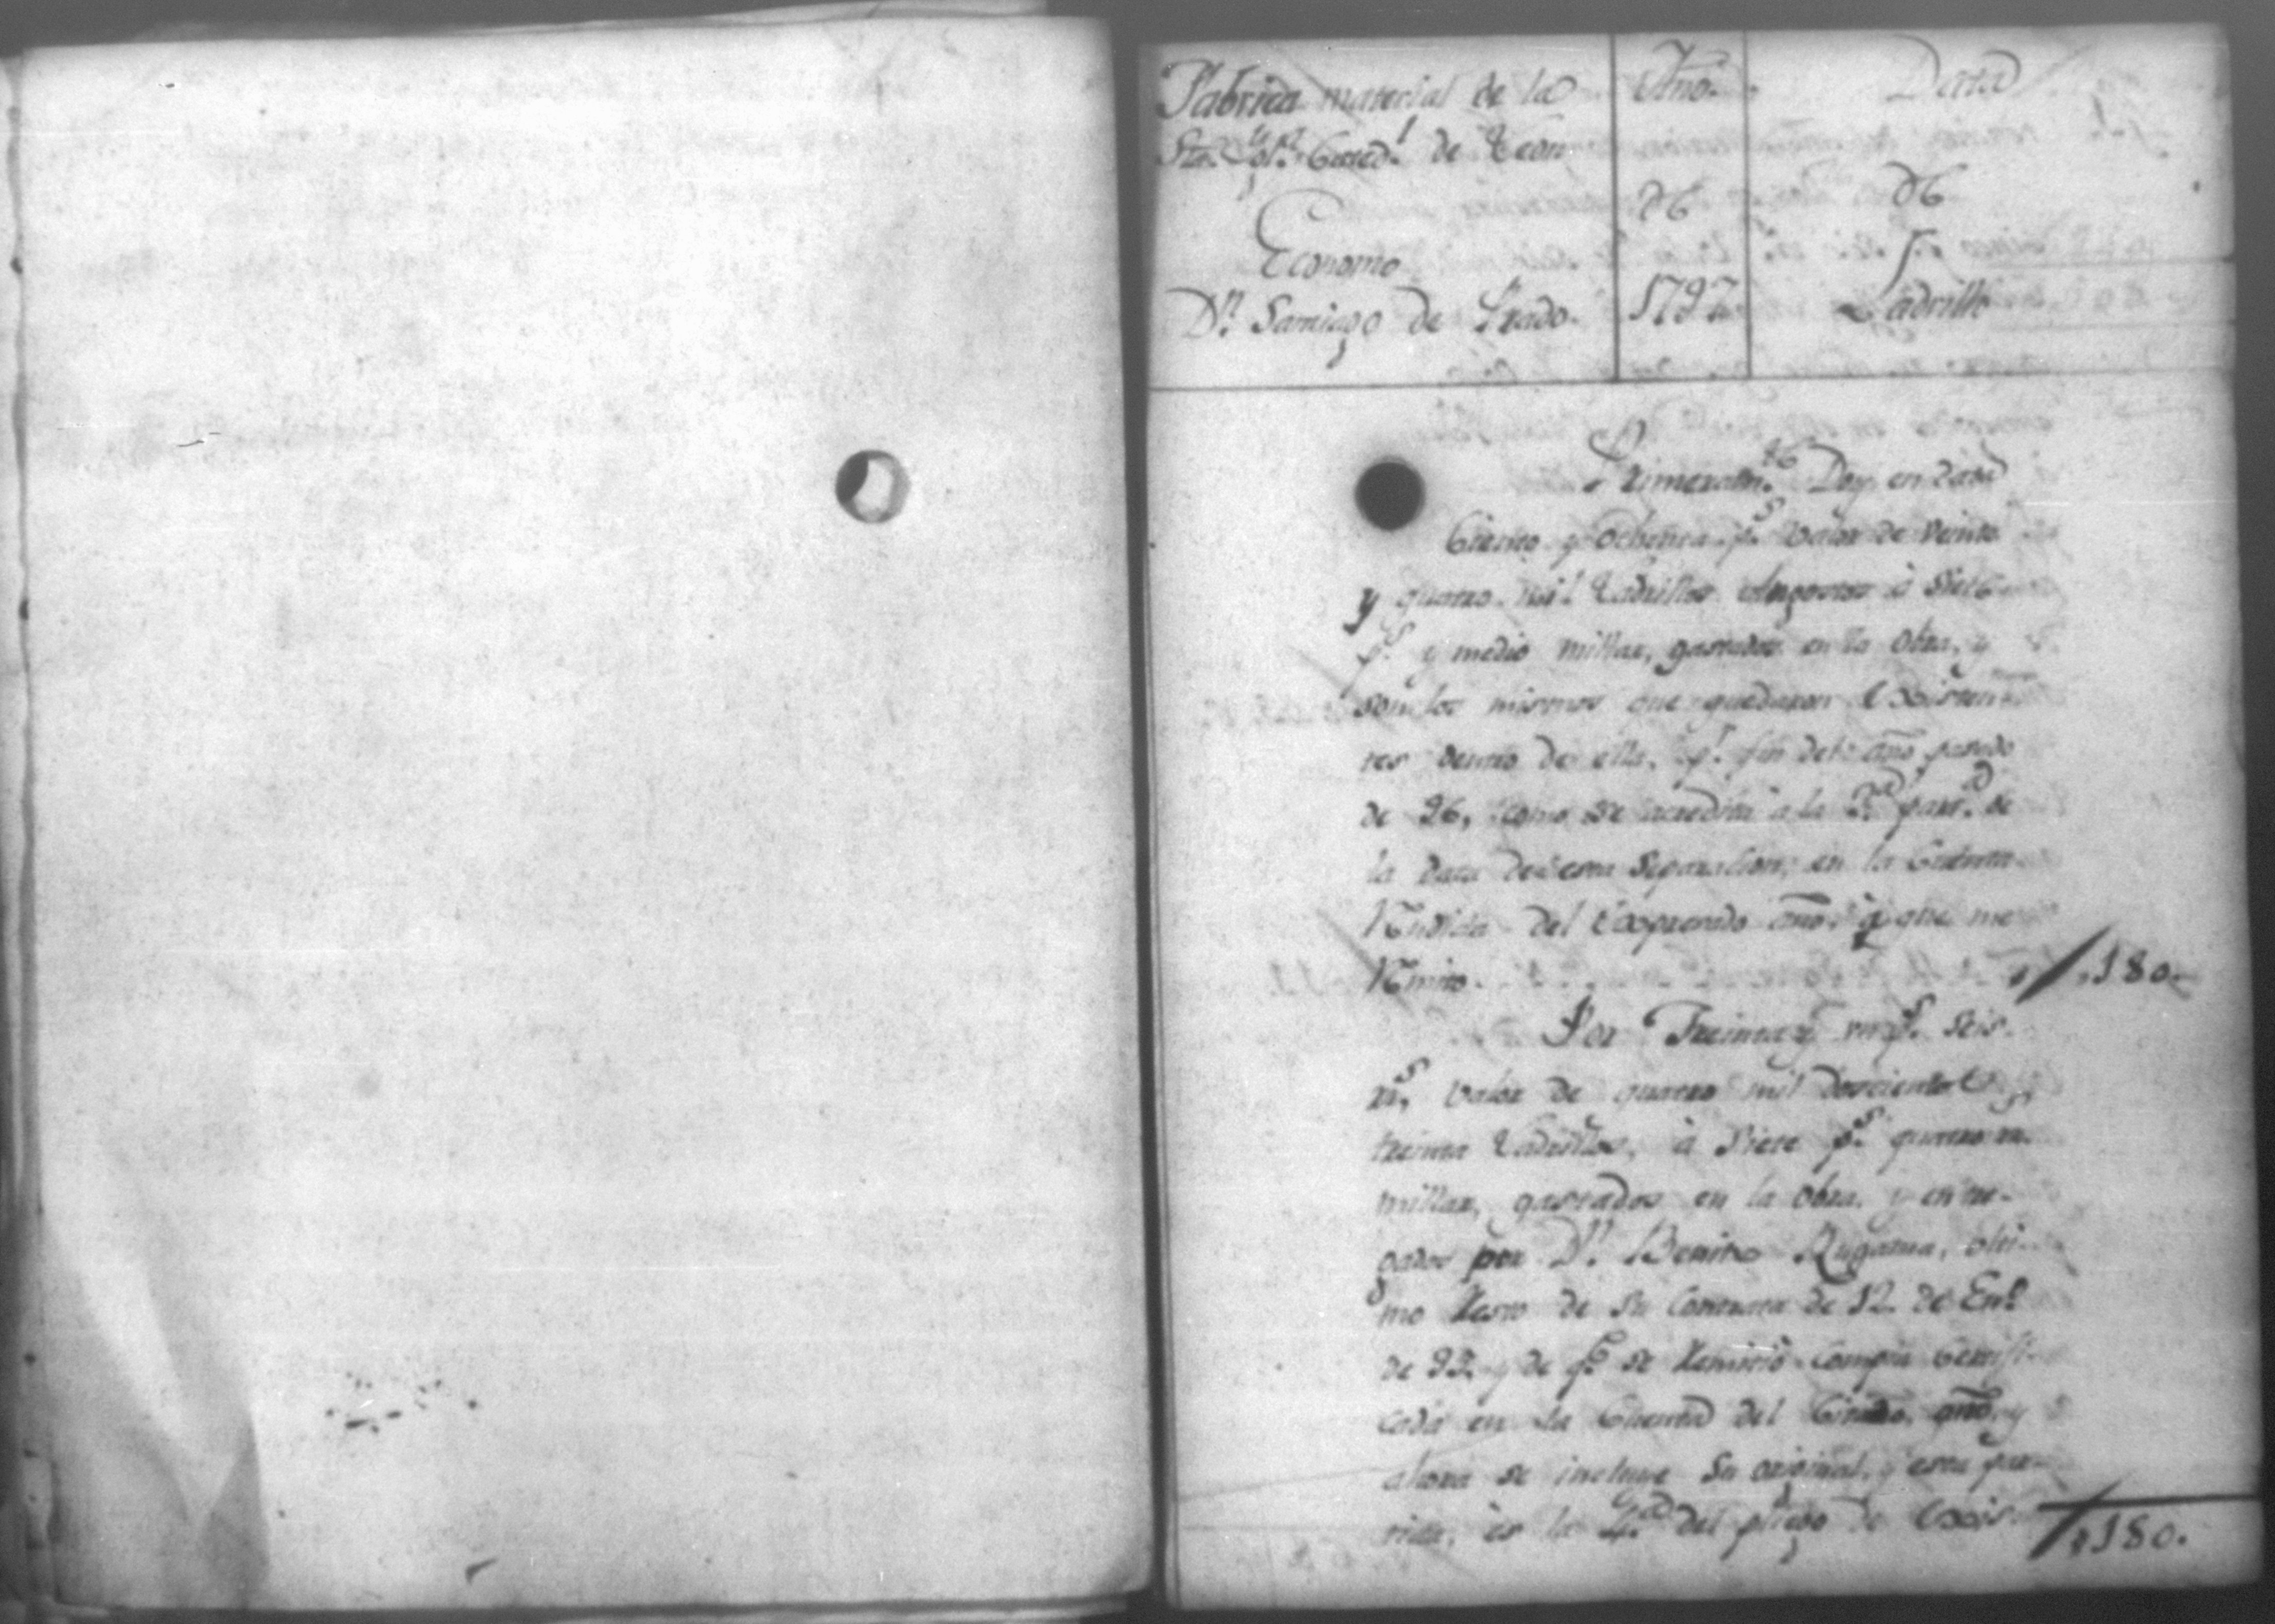 Fabrica material de la
Sta. Ygla. Cated.l de Leon
Economo
Dn. Santiago de Prado.
Año.
de
1797
Data
de
Ladrillo
Primeramte. Doy en data
Ciento y ochenta ps. valor de veinte
y quatro mil Ladrillos à siete
ps. y medio millar, gastados en la obra, y
son los mismos que quedaron existen
tes dentro de ella, pr. fin del año pasado
de 96, como se acredita a la 2.ª part.ª de
la data de esta Separacion, en la Cuenta
Rendida del expresado año, à que me
Remito. 180.
Por Treinta y un ps. seis
rs. valor de quatro mil doscientos
treinta Ladrillos, à siete ps. quatro rs.
millar, gastados en la obra, y entre-
gados por Dn. Benito Rugama, olti-
mo Resto de su Contrata de 12 de Eno.
de 93 y de qe. se Remitiò Compia Certifi-
cada en la Cuenta del Citado año, y
ahora se incluye su original, y esta par-
tida, es la 4.ª del pliego de exis-
180.